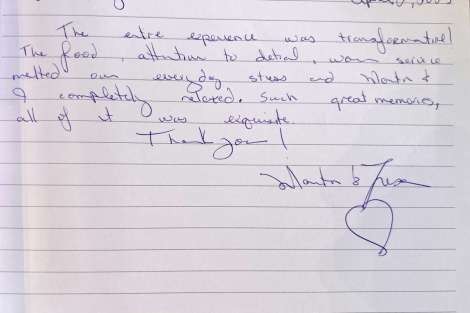 The entire experience was transformative!
The food, attention to detial, warm service
melted our everyday stress and Martn &
I completely relaxed. Such great memories,
all of it was exquisite.
Thank you!
Martn &